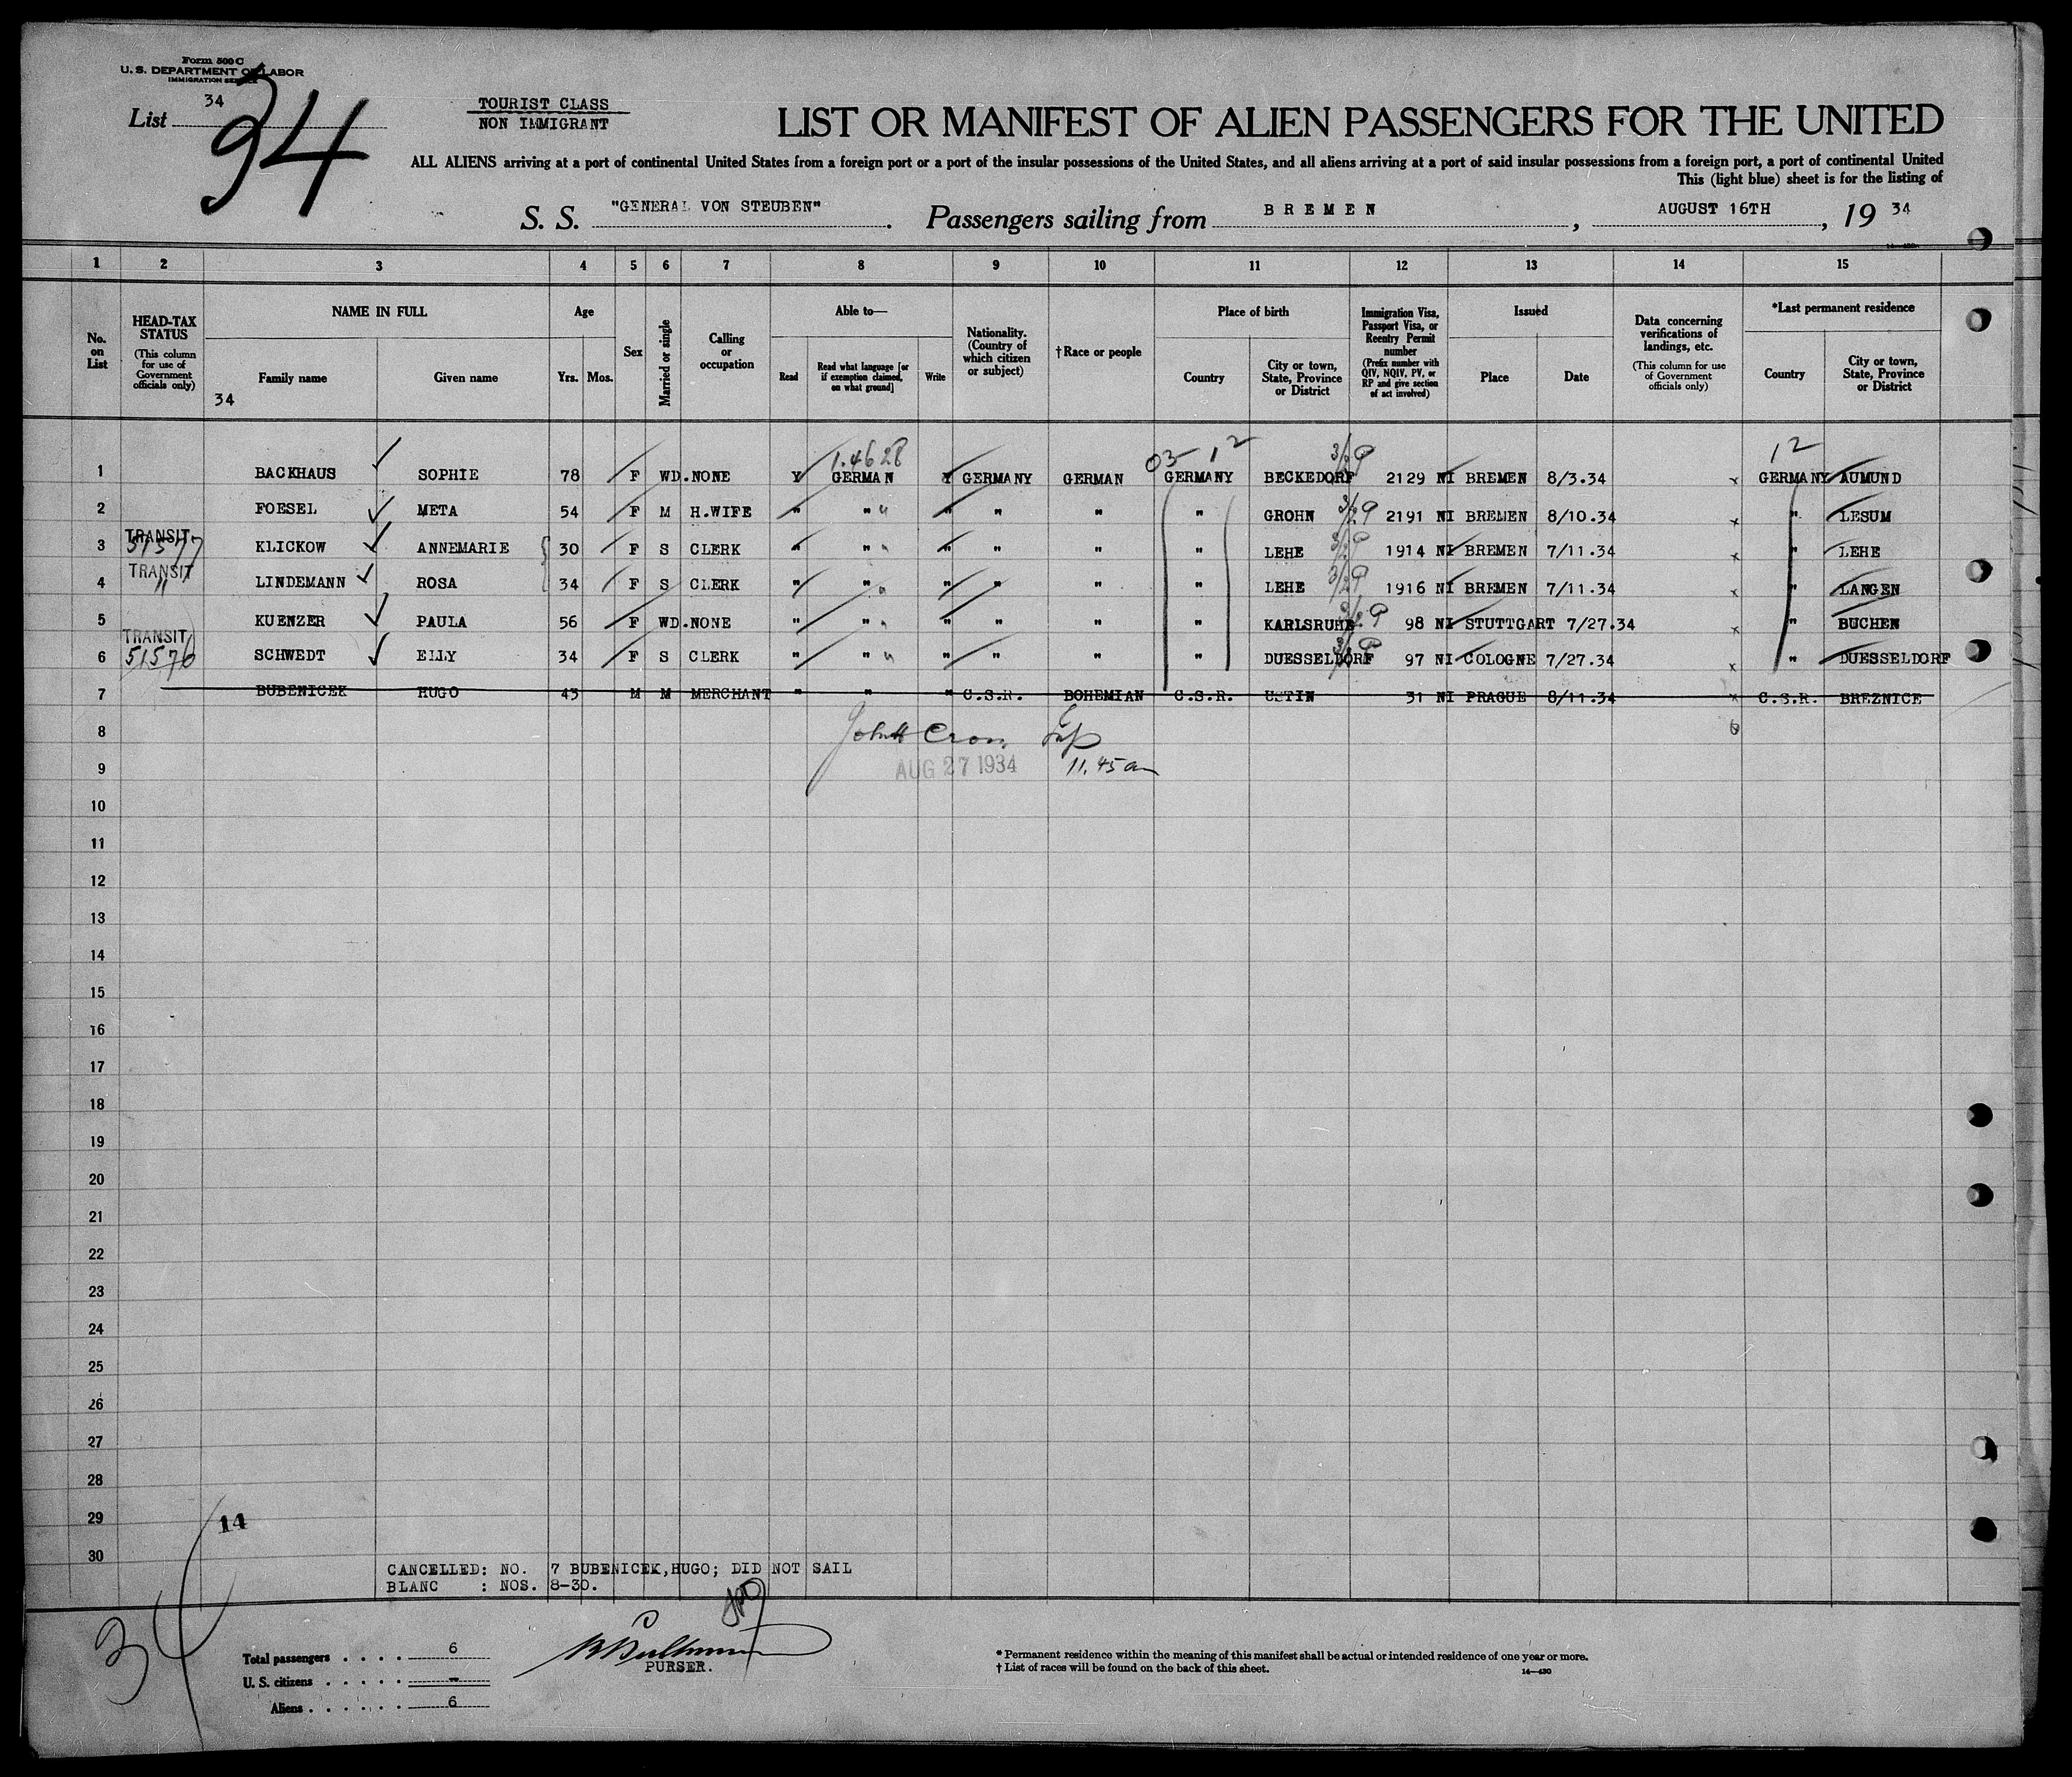 Form 500 C
U. S. DEPARTMENT OF LABOR
IMMIGRATION SERVICE
List 34
94
TOURIST CLASS
NON IMMIGRANT
LIST OR MANIFEST OF ALIEN PASSENGERS FOR THE UNITED
ALL ALIENS arriving at a port of continental United States from a foreign port or a port of the insular possessions of the United States, and all aliens arriving at a port of said insular possessions from a foreign port, a port of continental United
This (light blue) sheet is for the listing of
S. S. "GENERAL VON STEUBEN". Passengers sailing from BREMEN, AUGUST 16TH, 19 34
1 2 3 4 5 6 7 8 9 10 11 12 13 14 15
No. on List
HEAD-TAX STATUS (This column for use of Government officials only)
NAME IN FULL
Family name
Given name
34
Age
Yrs. Mos.
Sex
Married or single
Calling or occupation
Able to—
Read
Read what language [or if exemption claimed, on what ground]
Write
Nationality. (Country of which citizen or subject)
†Race or people
Place of birth
Country
City or town, State, Province or District
Immigration Visa, Passport Visa, or Reentry Permit number (Prefix number with QIV, NQIV, PV, or RP and give section of act involved)
Issued
Place
Date
Data concerning verifications of landings, etc. (This column for use of Government officials only)
*Last permanent residence
Country
City or town, State, Province or District
1.4628 03 12 3/29 12
1 BACKHAUS SOPHIE 78 F WD. NONE Y GERMAN Y GERMANY GERMAN GERMANY BECKEDORF 2129 NI BREMEN 8/3.34 x GERMANY AUMUND
2 FOESEL META 54 F M H.WIFE " " " " " " " GROHN 3/29 2191 NI BREMEN 8/10.34 x " LESUM
TRANSIT
3 51577 KLICKOW ANNEMARIE 30 F S CLERK " " " " " " " LEHE 3/29 1914 NI BREMEN 7/11.34 x " LEHE
TRANSIT
4 " LINDEMANN ROSA 34 F S CLERK " " " " " " " LEHE 3/29 1916 NI BREMEN 7/11.34 x " LANGEN
5 KUENZER PAULA 56 F WD. NONE " " " " " " " KARLSRUHE 3/29 98 NI STUTTGART 7/27.34 x " BUCHEN
TRANSIT
6 51576 SCHWEDT ELLY 34 F S CLERK " " " " " " " DUESSELDORF 3/29 97 NI COLOGNE 7/27.34 x " DUESSELDORF
7 BUBENICEK HUGO 43 M M MERCHANT " " " C.S.R. BOHEMIAN C.S.R. USTIN 31 NI PRAGUE 8/11.34 x C.S.R. BREZNICE
8 John H Cron Insp
9 AUG 27 1934 11.45 am
10
11
12
13
14
15
16
17
18
19
20
21
22
23
24
25
26
27
28
29 14
30
CANCELLED: NO. 7 BUBENICEK,HUGO; DID NOT SAIL
BLANC : NOS. 8-30.
34
Total passengers . . . . 6
U. S. citizens . . . . . —
Aliens . . . . . . 6
PURSER.
* Permanent residence within the meaning of this manifest shall be actual or intended residence of one year or more.
† List of races will be found on the back of this sheet.
14—430